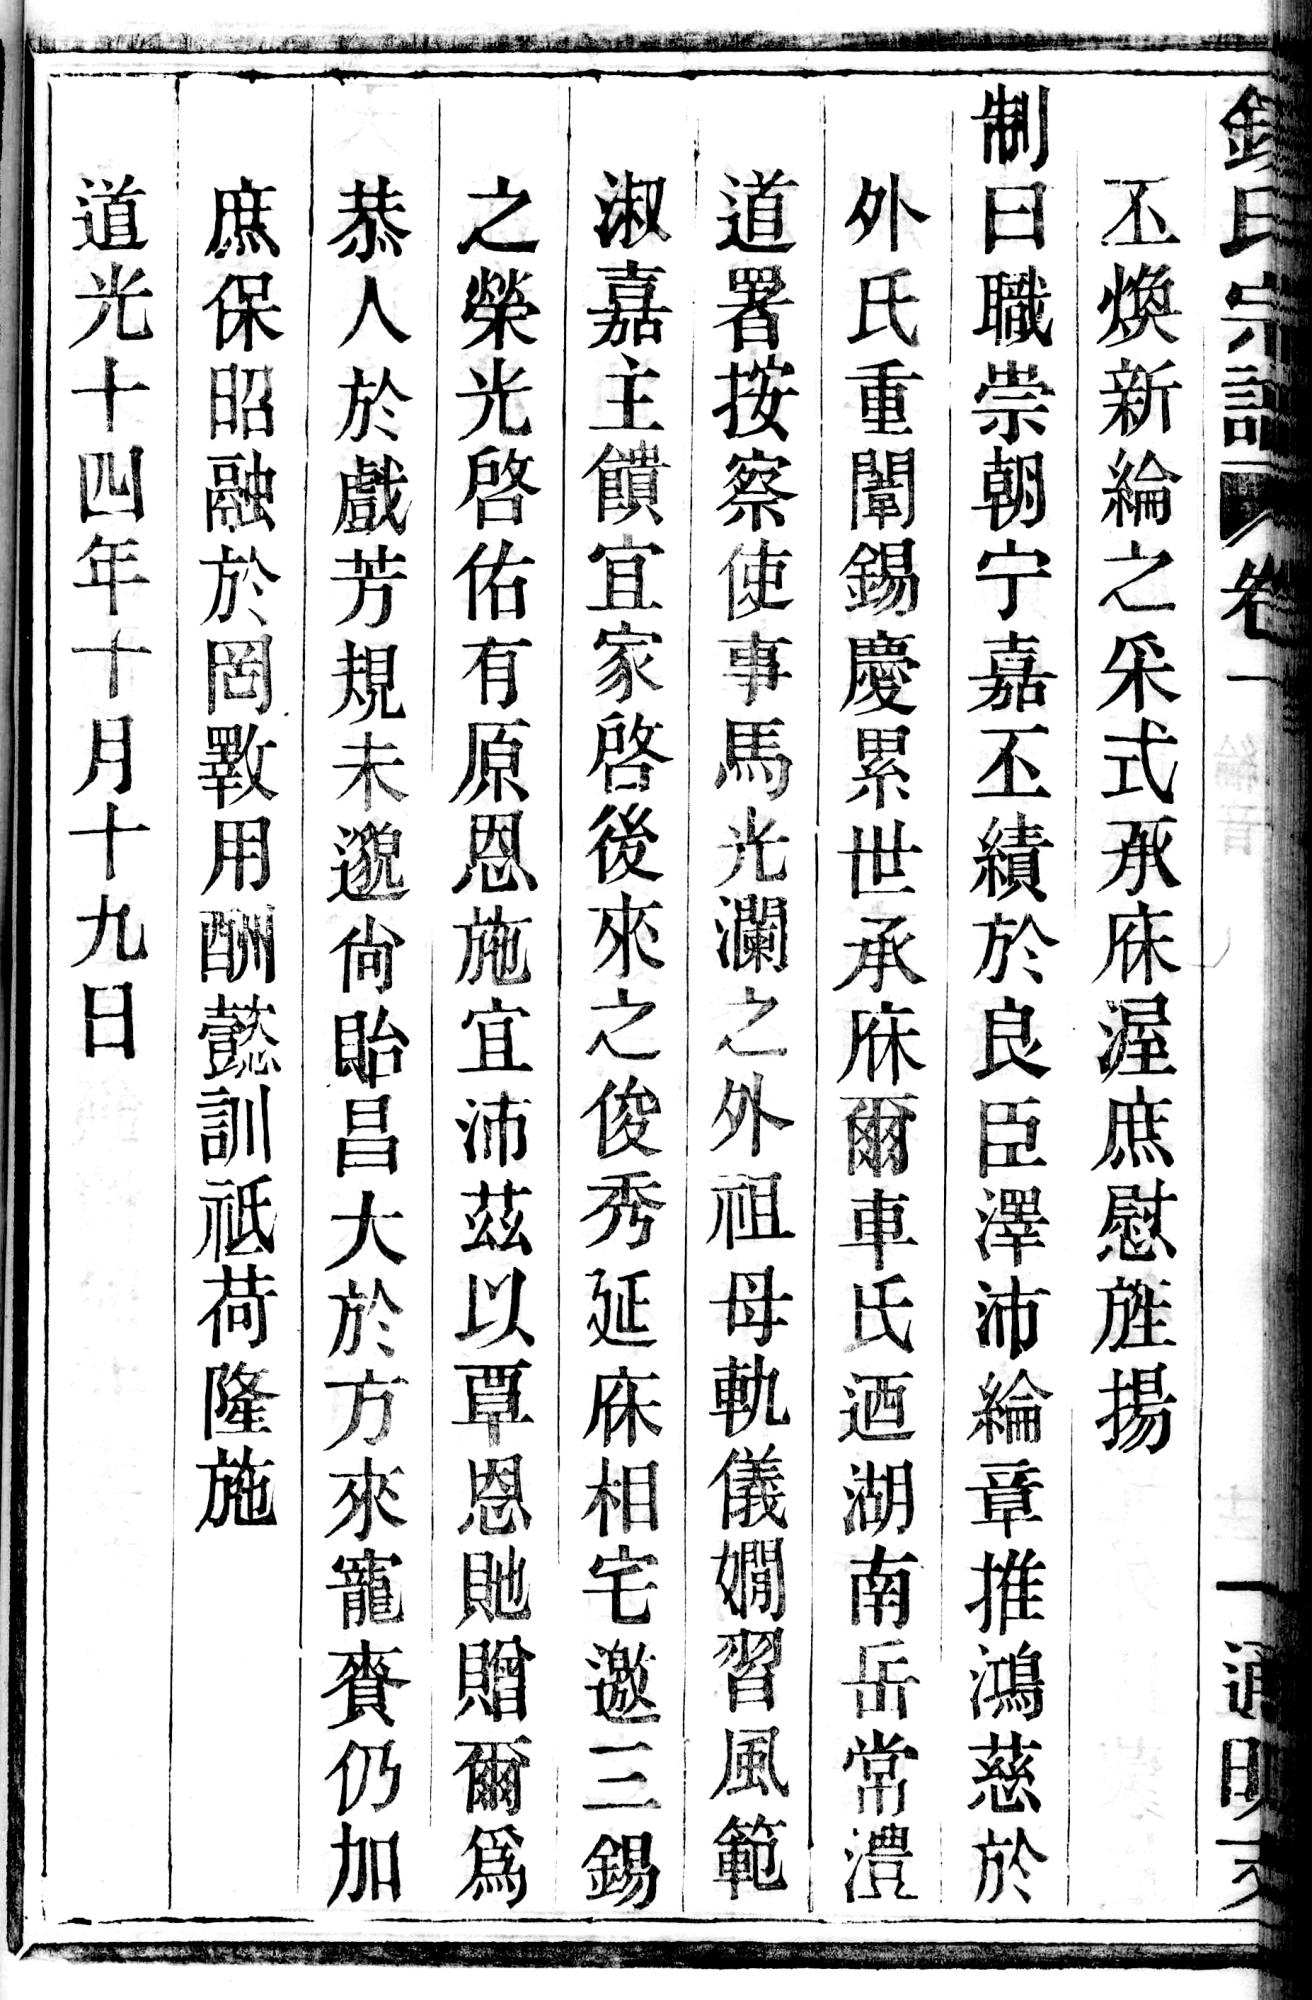 氏宗譜 卷一 通明支
丕煥新綸之采式承庥渥庶慰旌揚
制曰職崇朝宁嘉丕績於良臣澤沛綸章推鴻慈於
外氏重闈錫慶累世承庥爾車氏迺湖南岳常澧
道署按察使事馬光瀾之外祖母軌儀嫺習風範
淑嘉主饋宜家啓後來之俊秀延庥相宅邀三錫
之榮光啓佑有原恩施宜沛茲以覃恩貤贈爾爲
恭人於戲芳規未邈尙貽昌大於方來寵賚仍加
庶保昭融於罔斁用酬懿訓祗荷隆施
道光十四年十月十九日